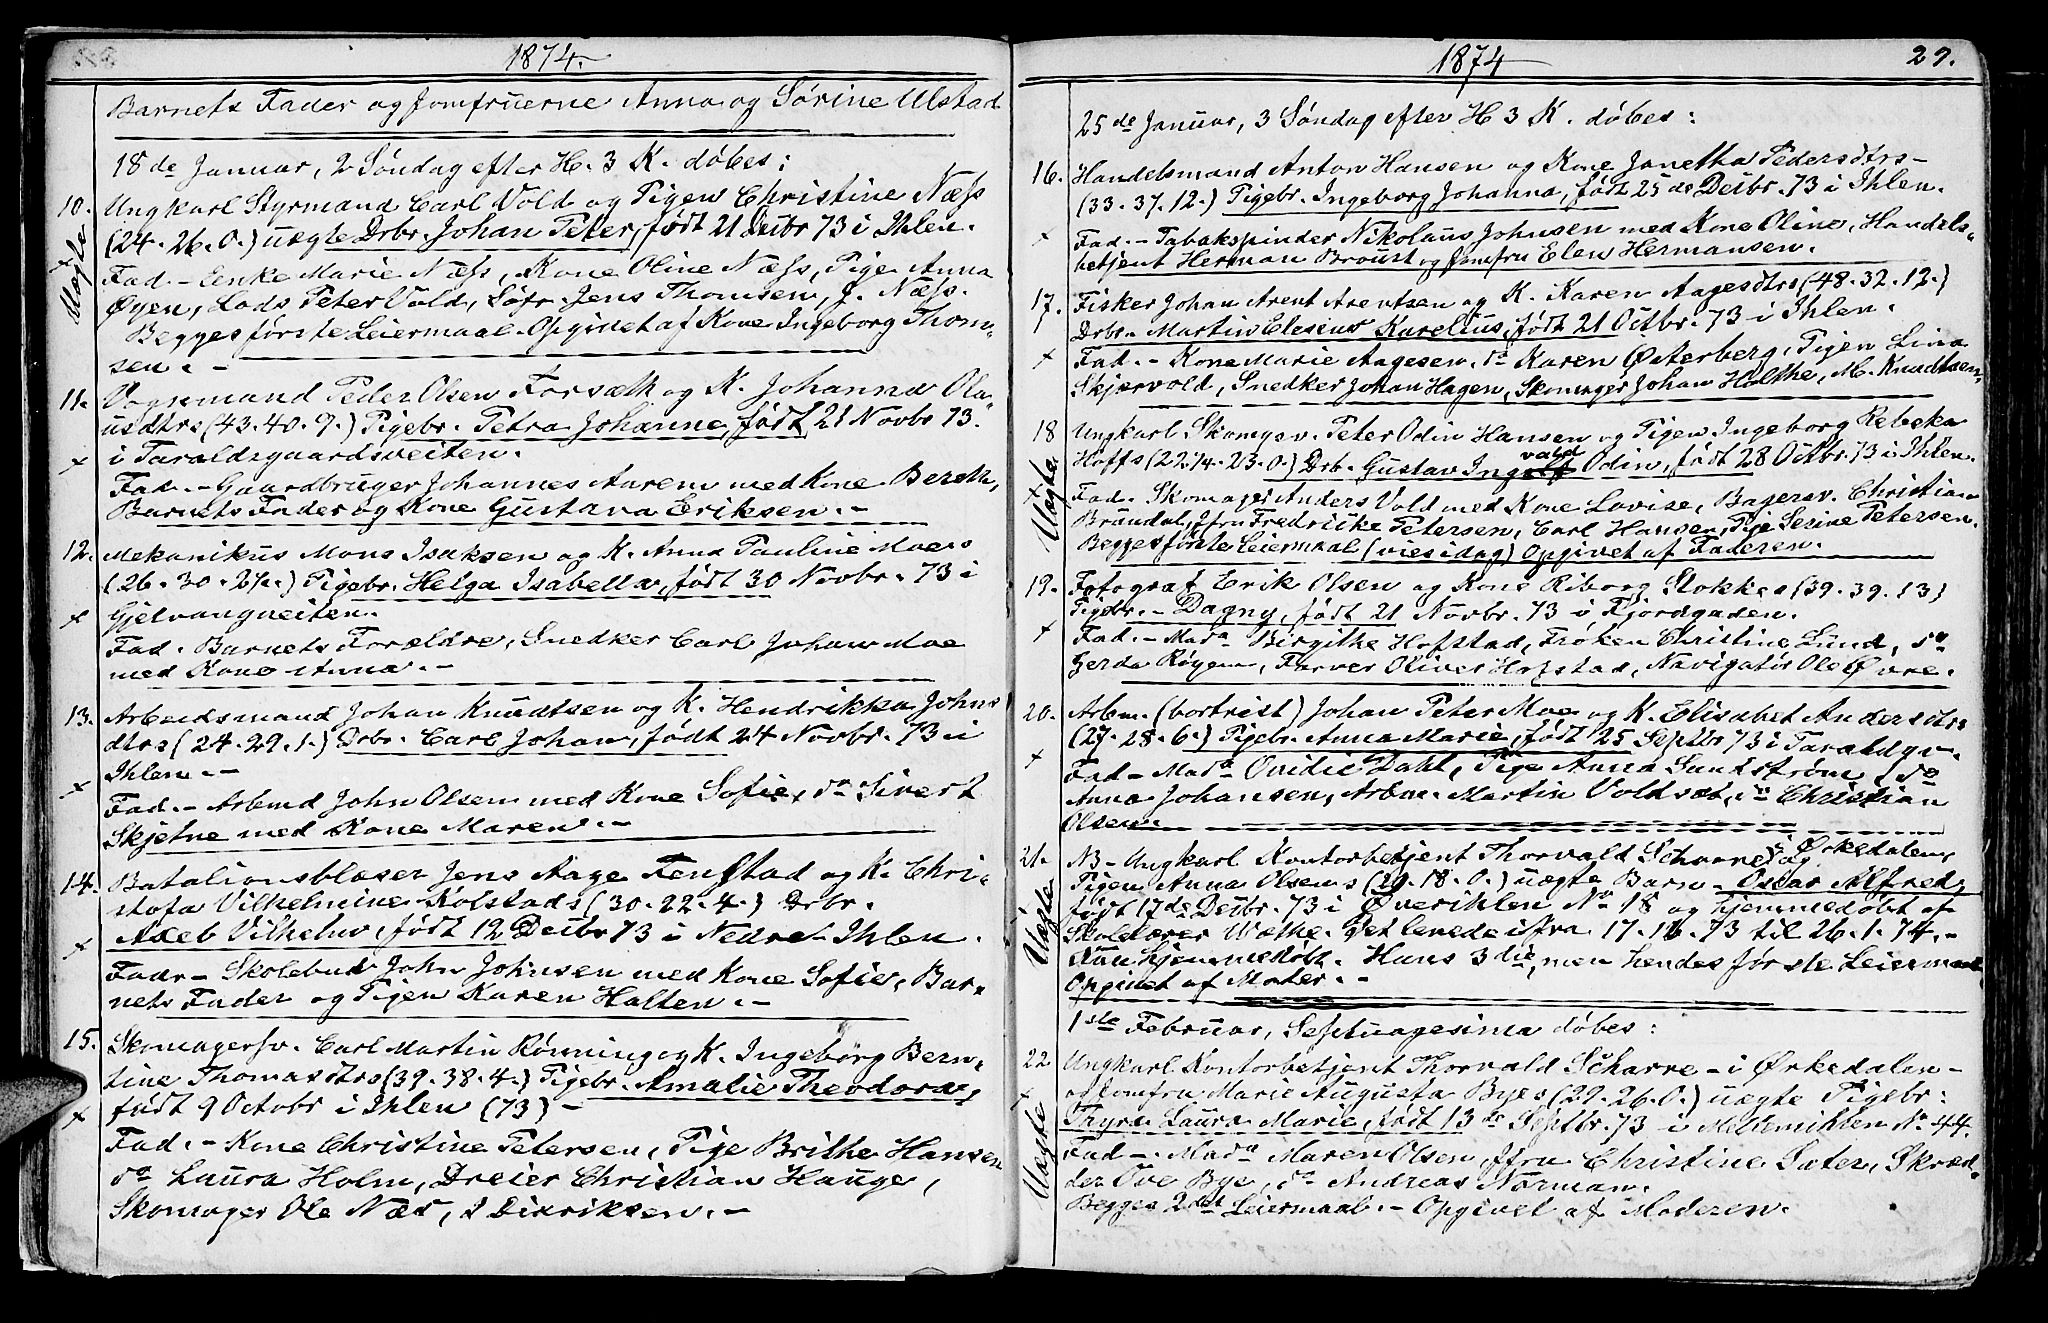 1874.
Barnets Fader og Jomfruerne Anna og Sørine Ulstad
18de Januar, 2 Søndag efter H. 3 K. døbes:
10. Ungkarl Styrmand Carl Vold og Pigen Christine Næss
(24. 26. 0.) uægte Drbr. Johan Peter, født 21 Decbr 73 i Ihlen.
Uægte
Fad. - Enke Marie Næss, Kone Oline Næss, Pige Anna
Øyen, Lods Peter Vold, Søfr. Jens Thomsen, J. Næss.
Begges første Leiermaal. Opgivet af Kone Ingeborg Thom-
sen. -
11. Vognmand Peder Olsen Forsæth og K. Johanna Ola-
usdtrs (43. 40. 9.) Pigebr. Petra Johanne, født 21 Novbr 73.
i Taraldsgaardsveiten.
Fad. - Gaardbruger Johannes Aarem med Kone Bereth,
Barnets Fader og Kone Gustava Eriksen. -
12. Mekanikus Mons Isaksen og K. Anna Pauline Moers
(26. 30. 2½.) Pigebr. Helga Isabella, født 30 Novbr. 73 i
Gjelvangveiten.
Fad. Barnets Forældre, Snedker Carl Johan Moe
med Kone Anna. -
13. Arbeidsmand Johan Knudtsen og K. Hendrikka Johns
dtrs (24. 29. 1.) Drbr. Carl Johan, født 24 Novbr. 73 i
Ihlen. -
Fad. - Arbmd John Olsen med Kone Sofie, do Sivert
Skjetne med Kone Maren. -
14. Batalionsblæser Jens Aage Fenstad og K. Chri-
stofa Vilhelmine Kolstads (30. 22. 4.) Drbr.
Axel Vilhelm, født 12 Decbr 73 i Nedre Ihlen.
Fadr - Skolebud John Johnsen med Kone Sofie, Bar-
nets Fader og Pigen Karen Halten. -
15. Skomagersv. Carl Martin Rønning og K. Ingeborg Bern-
tine Thomasdtrs (39. 38. 4.) Pigebr. Amalie Theodora,
født 9 Octobr i Ihlen (73) -
Fad. - Kone Christine Petersen, Pige Brithe Hansen
do Laura Holm, Dreier Christian Hauge,
Skomager Ole Næs, Dideriksen. -
1874 29.
25de Januar, 3 Søndag efter H 3 K. døbes:
16. Handelsmand Anton Hansen og Kone Janetha Pedersdtrs -
(33. 37. 12.) Pigebr. Ingeborg Johanna, født 25de Decbr. 73 i Ihlen.
Fad. - Tabakspinder Nikolaus Johnsen med Kone Oline, Handels-
betjent Herman Broust og Jomfru Elen Hermansen.
17. Fisker Johan Arent Arentsen og K. Karen Aagesdtrs (48. 32. 12.)
Drbr. Martin Elesius Karelius, født 21 Octbr. 73 i Ihlen.
Fad. - Kone Marie Aagesen, do Karen Østerberg, Pigen Lina
Skjærvold, Snedker Johan Hagen, Skomager Johan Holthe, M. Knudtsen,
18 Ungkarl Skomgsv. Peter Odin Hansen og Pigen Ingeborg Rebeka
Hoffs (22¼. 23. 0.) Drb. Gustav Ingvald Odin, født 28 Octbr. 73 i Ihlen.
Uægte
Fad. Skomager Anders Vold med Kone Lovise, Bagersv. Christian
Brøndal, Jfru Fredrikke Petersen, Carl Hansen, Pige Serine Petersen.
Begges første Leiermaal (vies idag) Opgivet af Faderen.
19. Fotograf Erik Olsen og Kone Riborg Stokkes (39. 39. 13)
Pigebr. - Dagny, født 21 Novbr. 73 i Fjordgaden.
Fad. - Mada Birgithe Hofstad, Frøken Christine Lund, do
Gerda Røyem, Farver Oliver Hofstad, Navigatør Ole Øvre.
20. Arbm. (bortrist) Johan Peter Moe og K. Elisabet Andersdtrs
(27. 28. 6.) Pigebr. Anna Marie, født 25 Septbr 73 i Taraldgv.
Fad - Mada Ovidie Dahl, Pige Anna Sundstrøm, do
Anna Johansen, Arbm. Martin Voldsæt, do Christian
Olsen.
21. NB - Ungkarl Kontorbetjent Thorvald Scharre i Ørkedalen og
Pigen Anna Olsens (29. 18. 0.) uægte Barn - Oscar Alfred,
født 17de Decbr. 73 i Øverihlen No 18 og hjemmedøbt af
Uægte
Skolelærer Wæthe. Det levede ifra 17.12.73 til 26.1.74. -
Kun hjemmedøbt. Hans 3die, men hendes første Leiermaal.
Opgivet af Moder. -
1ste Februar, Septuagesima døbes:
22 Ungkarl Kontorbetjent Thorvald Scharre - i Ørkedalen -
og Jomfru Marie Augusta Byes (29. 26. 0.) uægte Pigebr:
Thyra Laura Marie, født 13de Septbr. 73 i Mellemihlen No 44.
Uægte
Fad - Mada Maren Olsen, Jfru Christine Sæter, Skræd-
der Ove Bye, do Andreas Norman.
Begges 2det Leiermaal. - Opgivet af Moderen.